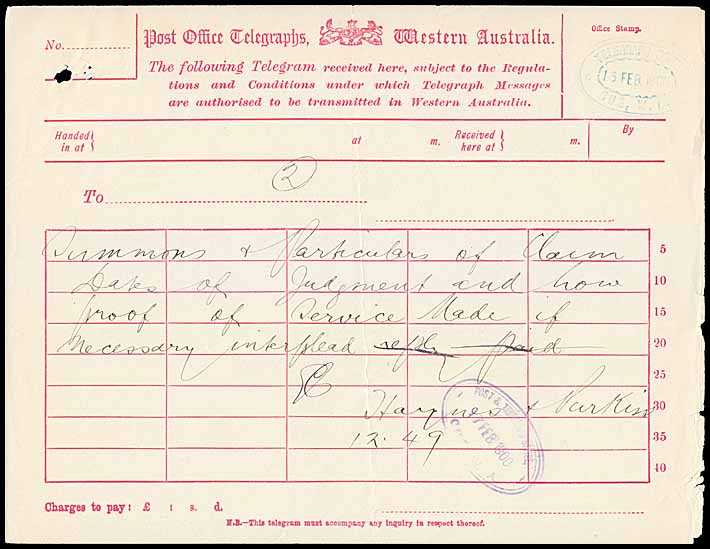 No.
Post Office Telegraphs, Western Australia.
The following Telegram received here, subject to the Regula-
tions and Conditions under which Telegraph Messages
are authorised to be transmitted in Western Australia.
Office Stamp.
15 FEB
Handed in at } at m. Received here at } m. By
2
To
Summons & Particulars of Claim 5
Dates of Judgment and how 10
proof of Service Made if 15
necessary interplead reply paid 20
25
Haynes & Purkiss 30
12.49 35
40
POST & TELEGRAPH
7 FEB 1900
Charges to pay: £ : s. d.
N.B.—This telegram must accompany any inquiry in respect thereof.